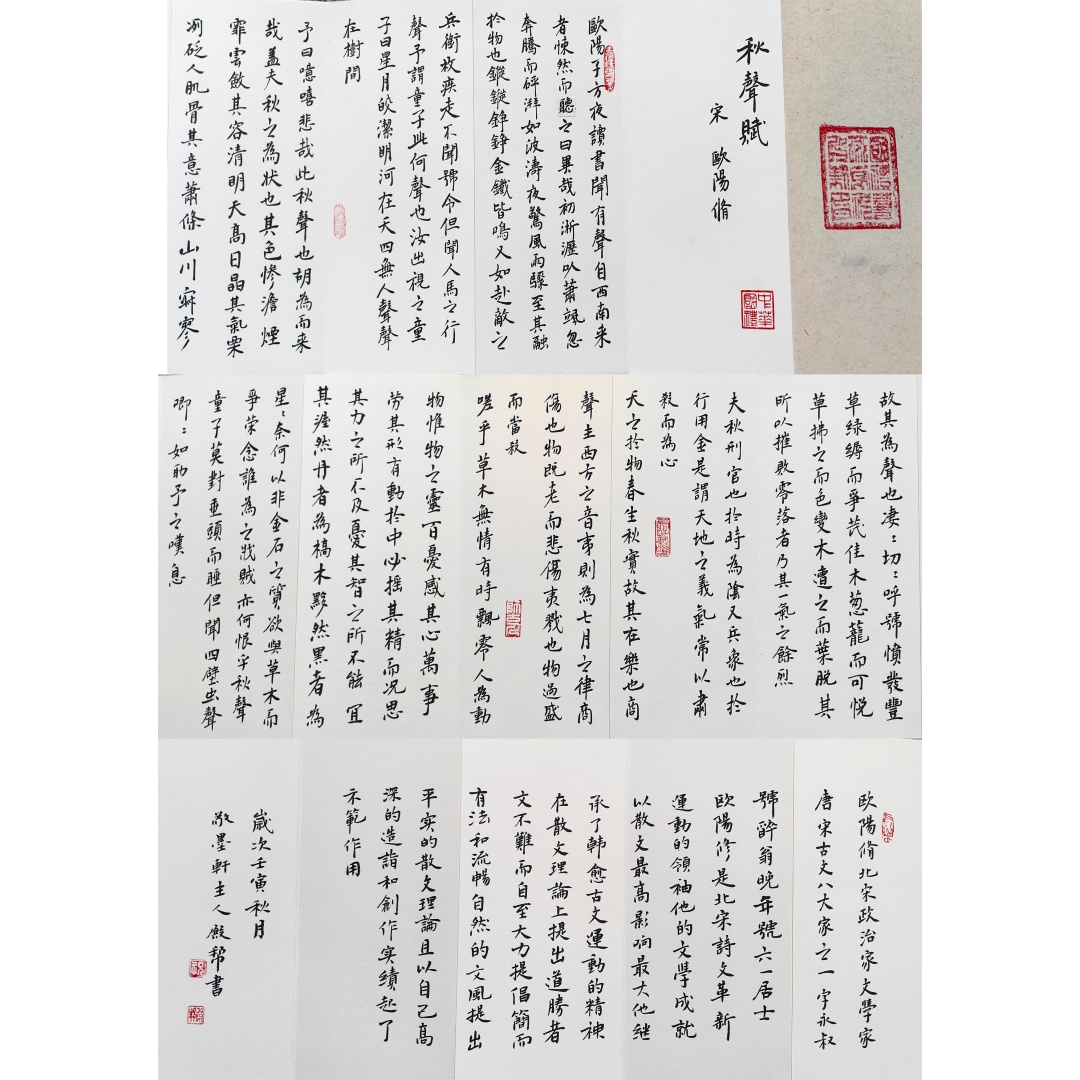 秋聲賦
宋 歐陽脩
中華
國禮
歐陽子方夜讀書聞有聲自西南来
者悚然而聽之曰異哉初淅瀝以蕭颯忽
奔騰而砰湃如波濤夜驚風雨驟至其融
扵物也鏦鏦錚錚金鐵皆鳴又如赴敵之
兵銜枚疾走不聞號令但聞人馬之行
聲予謂童子此何聲也汝出視之童
子曰星月皎潔明河在天四無人聲聲
在樹間
予曰噫嘻悲哉此秋聲也胡為而来
哉蓋夫秋之為状也其色慘澹煙
霏雲斂其容清明天高日晶其氣栗
冽砭人肌骨其意蕭條山川寂寥
故其為聲也凄〻切〻呼號憤發豐
草绿縟而爭茂佳木葱蘢而可悦
草拂之而色變木遭之而葉脱其
所以摧敗零落者乃其一氣之餘烈
夫秋刑官也扵時為陰又兵象也扵
行用金是謂天地之義氣常以肅
殺而為心
天之扵物春生秋實故其在樂也商
聲主西方之音夷則為七月之律商
傷也物既老而悲傷夷戮也物過盛
而當殺
嗟乎草木無情有時飄零人為動
物惟物之靈百憂感其心萬事
勞其形有動扵中必摇其精而况思
其力之所不及憂其智之所不能宜
其渥然丹者為槁木黟然黑者為
星〻奈何以非金石之質欲與草木而
爭榮念誰為之戕賊亦何恨乎秋聲
童子莫對垂頭而睡但聞四壁虫聲
唧〻如助予之嘆息
歐陽脩北宋政治家文學家
唐宋古文八大家之一字永叔
號醉翁晚年號六一居士
歐陽修是北宋詩文革新
運動的領袖他的文學成就
以散文最高影响最大他继
承了韩愈古文運動的精神
在散文理論上提出道勝者
文不難而自至大力提倡簡而
有法和流暢自然的文風提出
平实的散文理論且以自己高
深的造詣和創作实績起了
示範作用
歲次壬寅秋月
敬墨軒主人殷幇書